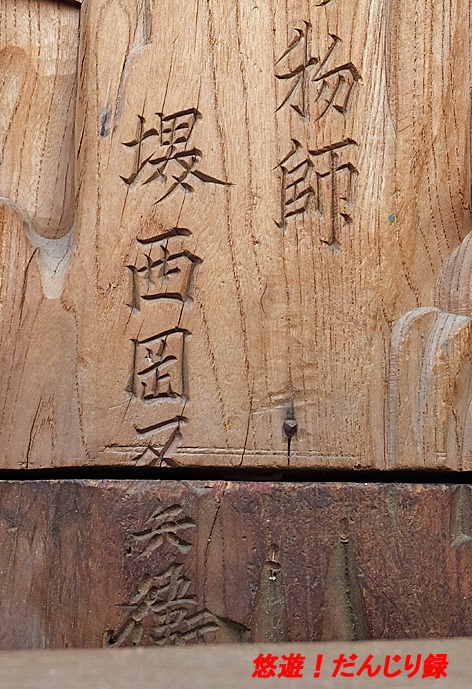 物師
堺西岡又兵衛
悠遊！だんじり録